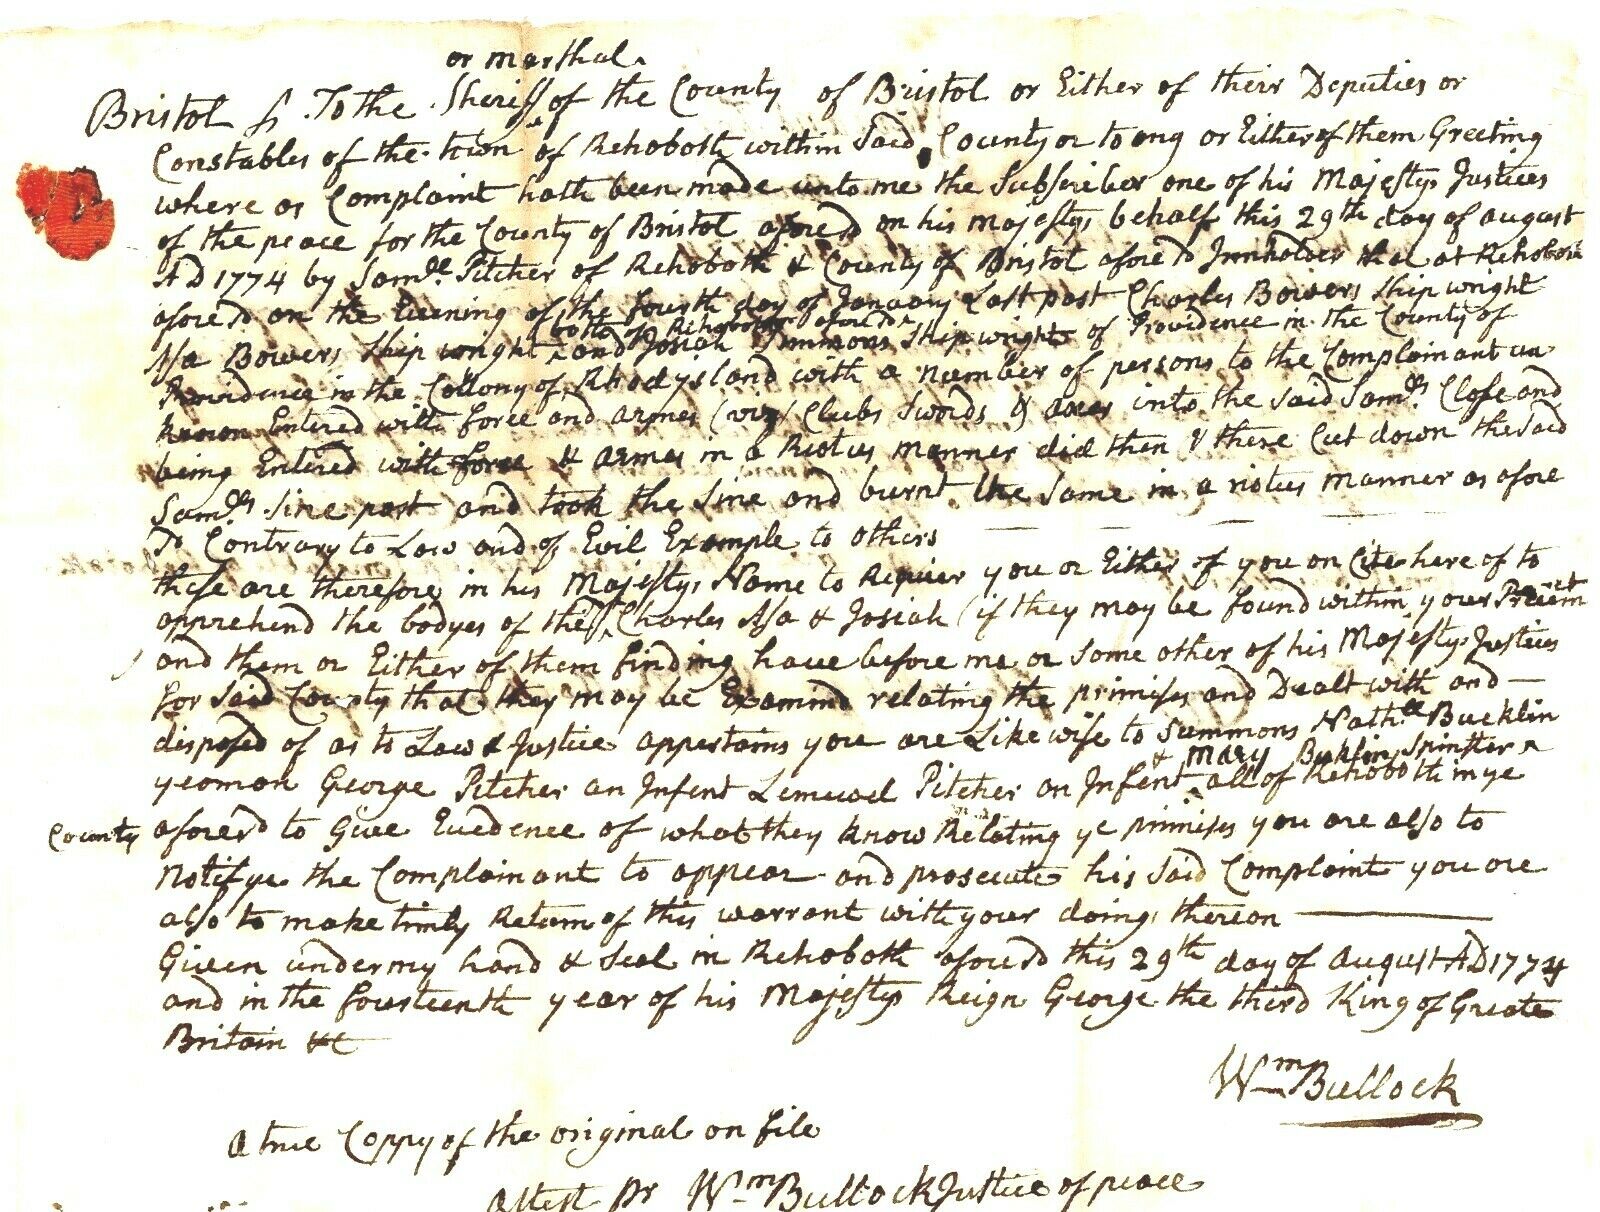 or marshal
Bristol ss. To the Sheriff of the County of Bristol or Either of their Deputies or
Constables of the town of Rehoboth within Said County or to any or Either of them Greeting
where as Complaint hath been made unto me the Subscriber one of his Majestys Justices
of the peace for the County of Bristol afores'd on his majestys behalf this 29th day of august
AD 1774 by Samll. Pitcher of Rehoboth & County of Bristol afores'd Innholder that at Rehoboth
afores'd on the Evening of the fourth day of January Last past Charles Bowers Shipwright
both of Rehoboth afores'd
Asa Bowers Ship wright and Josiah Simmons Shipwright of Providence in the County of
Providence in the Collony of Rhodysland with a number of persons to the Complainant un
known Entered with force and armes (viz) Clubs Swords & axes into the said Samlls Close and
being Entered with force & armes in a Riotus manner did then & there Cut down the said
Samlls Sine post and took the Sine and burnt the same in a riotus manner as afore
s'd Contrary to Law and of Evil Example to others
these are therefore in his Majestys Name to Requier you or Either of you on Cite here of to
apprehend the bodyes of the sd Charles Asa & Josiah (if they may be found within your Precinct
and them or Either of them finding have before me or some other of his Majestys Justices
for said County that they may be Examind relating the primises and Dealt with and
disposed of as to Law & Justice appertains you are Likewise to summons Nathll Bucklin
& Mary Bucklin Spinster
yeoman George Pitcher an Infent Lemuel Pitcher an Infent all of Rehoboth in ye
County afores'd to Give Evedence of what they know Relating ye primises you are also to
notifye the Complainant to appear and prosecute his said Complaint you are
also to make timly Return of this warrant with your doings thereon
Given under my hand & Seal in Rehoboth afores'd this 29th day of August AD 1774
and in the fourteenth year of his Majestys Reign George the third King of Greate
Britain &c
Wm Bullock
A true Coppy of the original on file
Attest pr Wm Bullock Justice of peace